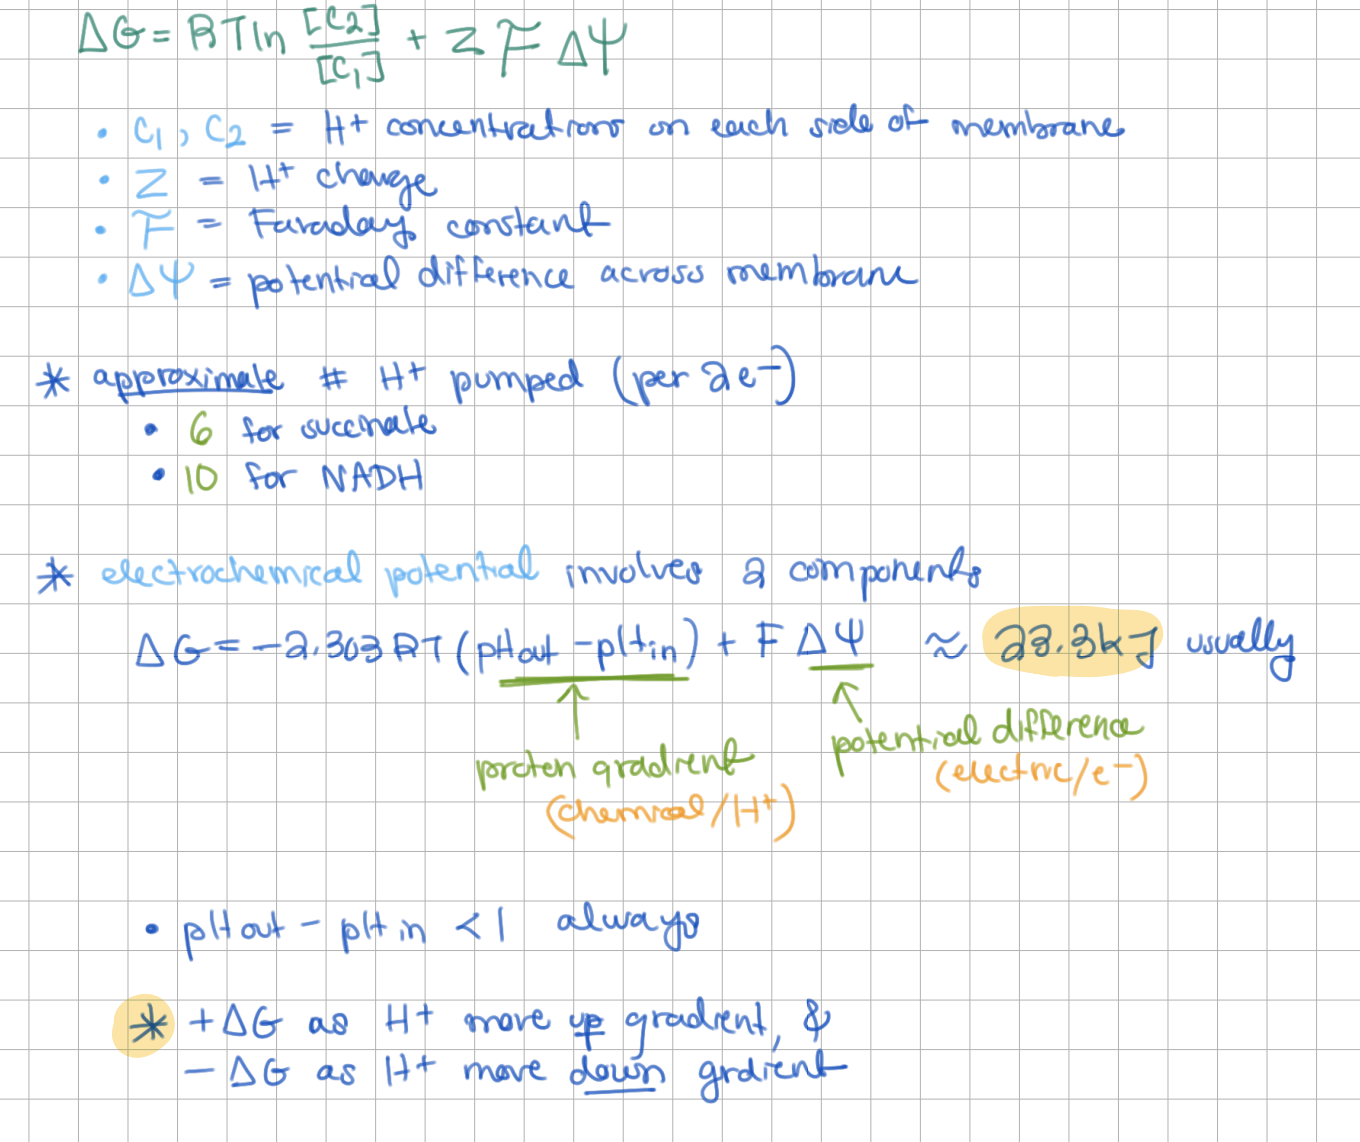 ΔG = RT ln [C2]/[C1] + Z F ΔΨ
• C1, C2 = H+ concentrations on each side of membrane
• Z = H+ charge
• F = Faraday constant
• ΔΨ = potential difference across membrane
* approximate # H+ pumped (per 2e-)
• 6 for succinate
• 10 for NADH
* electrochemical potential involves 2 components
ΔG = -2.303 RT (pHout - pHin) + F ΔΨ ≈ 23.3kJ usually
proton gradient
(chemical/H+)
potential difference
(electric/e-)
• pHout - pHin < 1 always
* +ΔG as H+ move up gradient, &
- ΔG as H+ move down grdient